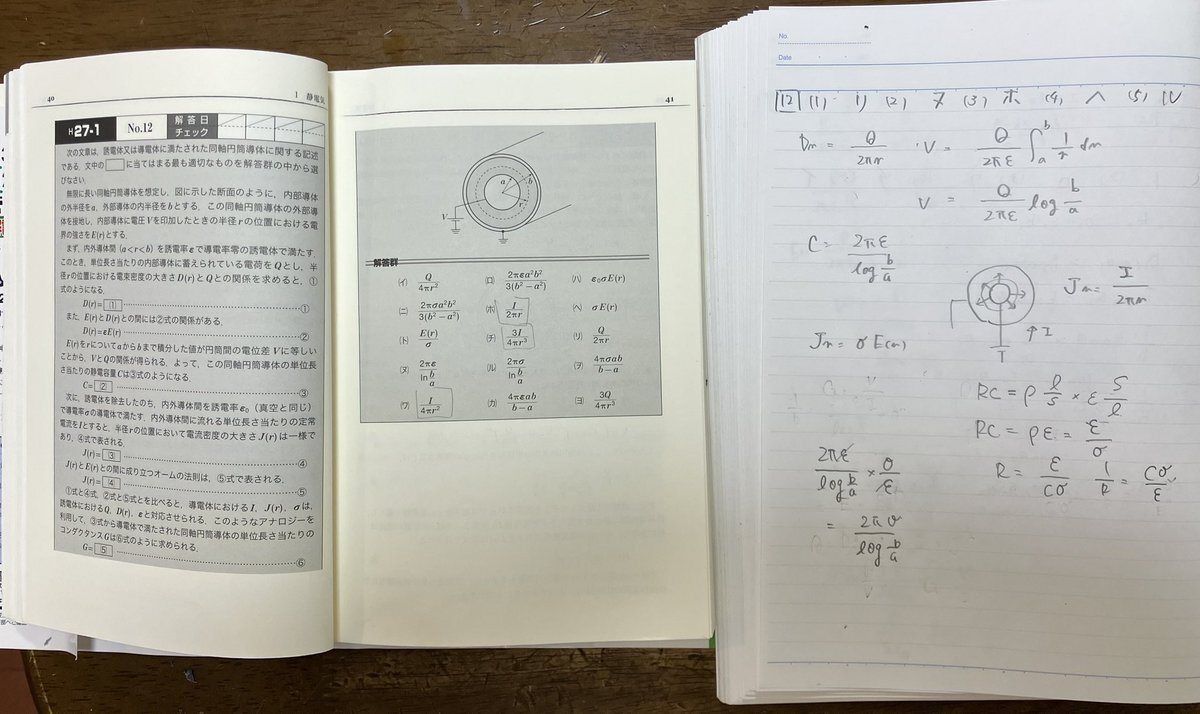 40
1 静電気
H27-1 No.12 解答日 チェック
次の文章は,誘電体又は導電体に満たされた同軸円筒導体に関する記述
である.文中の□に当てはまる最も適切なものを解答群の中から選
びなさい.
無限に長い同軸円筒導体を想定し,図に示した断面のように,内部導体
の外半径をa,外部導体の内半径をbとする.この同軸円筒導体の外部導
体を接地し,内部導体に電圧Vを印加したときの半径rの位置における電
界の強さをE(r)とする.
まず,内外導体間(a<r<b)を誘電率εで導電率零の誘電体で満たす.
このとき,単位長さ当たりの内部導体に蓄えられている電荷をQとし,半
径rの位置における電束密度の大きさD(r)とQとの関係を求めると,①
式のようになる.
D(r)=[1] ①
また,E(r)とD(r)との間には②式の関係がある.
D(r)=εE(r) ②
E(r)をrについてaからbまで積分した値が円筒間の電位差Vに等しい
ことから,VとQの関係が得られる.よって,この同軸円筒導体の単位長
さ当たりの静電容量Cは③式のようになる.
C=[2] ③
次に,誘電体を除去したのち,内外導体間を誘電率ε₀(真空と同じ)
で導電率σの導電体で満たす.内外導体間に流れる単位長さ当たりの定常
電流をIとすると,半径rの位置において電流密度の大きさJ(r)は一様で
あり,④式で表される.
J(r)=[3] ④
J(r)とE(r)との間に成り立つオームの法則は,⑤式で表される.
J(r)=[4] ⑤
①式と④式,②式と⑤式とを比べると,導電体におけるI,J(r),σは,
誘電体におけるQ,D(r),εと対応させられる.このようなアナロジーを
利用して,③式から導電体で満たされた同軸円筒導体の単位長さ当たりの
コンダクタンスGは⑥式のように求められる.
G=[5] ⑥
41
a
b
r
V
解答群
(イ) Q/4πr² (ロ) 2πεa²b²/3(b²−a²) (ハ) ε₀σE(r)
(ニ) 2πσa²b²/3(b²−a²) (ホ) I/2πr (ヘ) σE(r)
(ト) E(r)/σ (チ) 3I/4πr³ (リ) Q/2πr
(ヌ) 2πε/ln b/a (ル) 2πσ/ln b/a (ヲ) 4πσab/b−a
(ワ) I/4πr² (カ) 4πεab/b−a (ヨ) 3Q/4πr³
No.
Date
12 (1) リ (2) ヌ (3) ホ (4) ヘ (5) ル
Dr = Q/2πr V = Q/2πε ∫ₐᵇ 1/r dr
V = Q/2πε log b/a
C = 2πε/log b/a
Jr = I/2πr
↑I
Jr = σE(r)
RC = ρ l/S × ε S/l
RC = ρε = ε/σ
R = ε/Cσ 1/R = Cσ/ε
2πε/log b/a × σ/ε
= 2πσ/log b/a